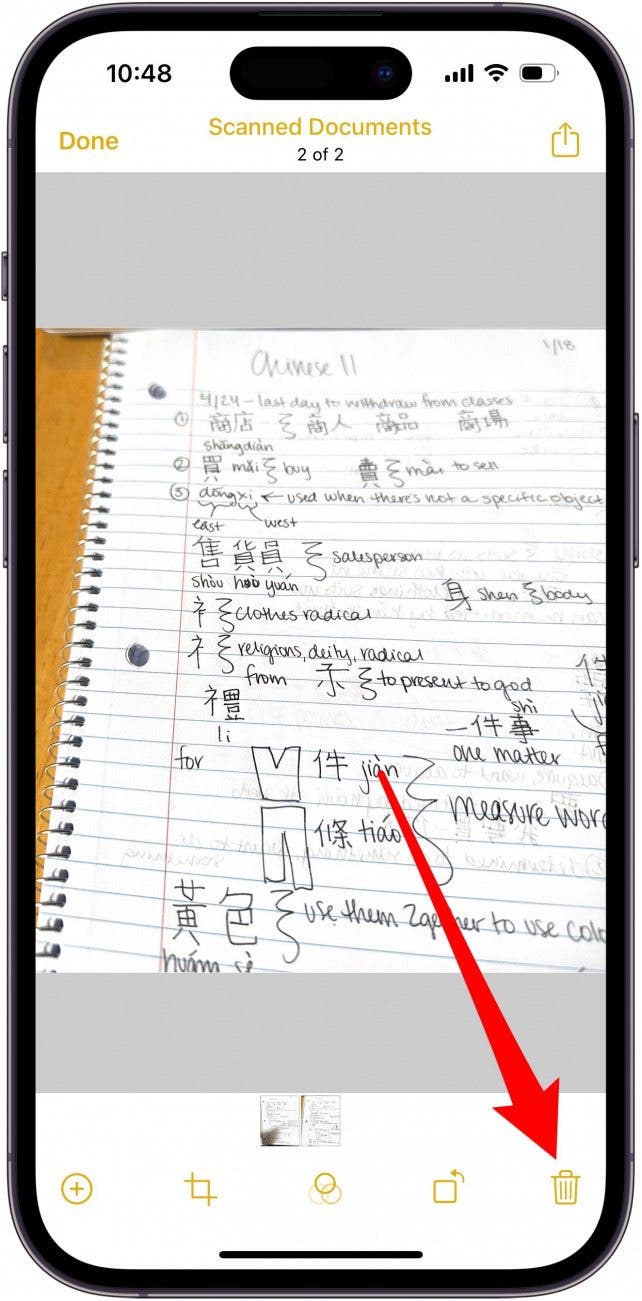 10:48
Done
Scanned Documents
2 of 2
1/18
Chinese 11
4/24 - last day to withdraw from classes
① 商店 商人 商品 商場
shāngdiàn
② 買 mǎi buy 賣 mài to sell
③ dōngxi ← used when there's not a specific object
east west
售貨員 salesperson
shòu huò yuán
身 shen body
衤 clothes radical
礻 religions, deity, radical
from 示 to present to god
禮
li
shì
一件事
one matter
for 件 jiàn
條 tiáo
measure wor
黃色 use them 2gether to use colo
huáng sè